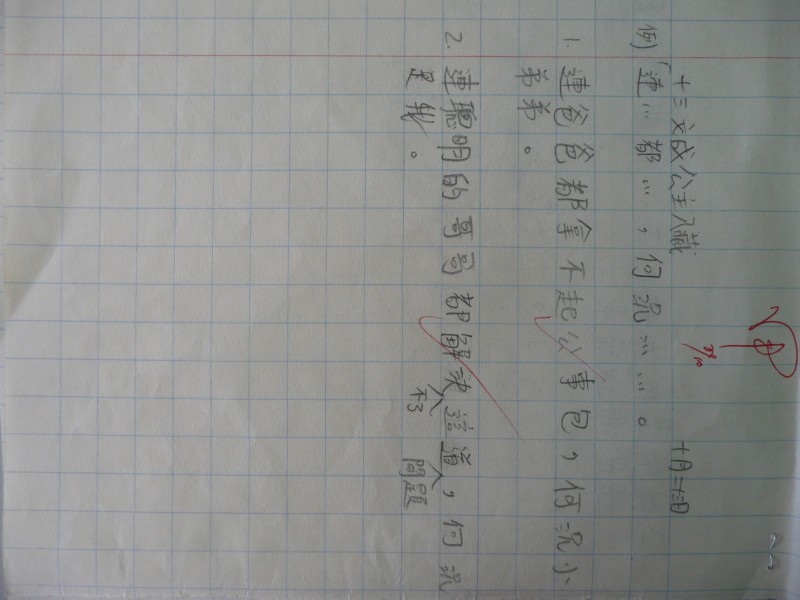 十三文成公主入藏 十月二十日
例) 「連…都…，何況……。
1. 連爸爸都拿不起公事包，何況小
弟弟。
2. 連聰明的哥哥都解決不了這道問題，何況
是我。